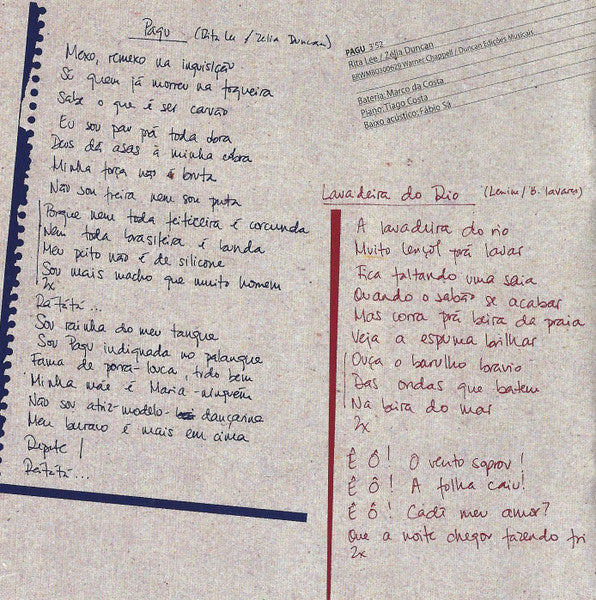 Pagu (Rita Lee / Zélia Duncan)
Mexo, remexo na inquisição
Só quem já morreu na fogueira
Sabe o que é ser carvão
Eu sou pau prá toda obra
Deus dá asas à minha cobra
Minha força não é bruta
Não sou freira nem sou puta
Porque nem toda feiticeira é corcunda
Nem toda brasileira é bunda
Meu peito não é de silicone
Sou mais macho que muito homem
2x
Ratatá...
Sou rainha do meu tanque
Sou Pagu indignada no palanque
Fama de porra-louca, tudo bem
Minha mãe é Maria-ninguém
Não sou atriz-modelo-dançarina
Meu buraco é mais em cima
Repete |
Ratatá...
PAGU 3'52
Rita Lee / Zélia Duncan
BRWMB0300629 Warner Chappell / Duncan Edições Musicais
Bateria: Marco da Costa
Piano: Tiago Costa
Baixo acústico: Fábio Sá
Lavadeira do Rio (Lenine / B. Tavares)
A lavadeira do rio
Muito lençol prá lavar
Fica faltando uma saia
Quando o sabão se acabar
Mas corra prá beira da praia
Veja a espuma brilhar
Ouça o barulho bravio
Das ondas que batem
Na beira do mar
2x
Ê Ô! O vento soprou!
Ê Ô! A folha caiu!
Ê Ô! Cadê meu amor?
Que a noite chegou fazendo fri
2x